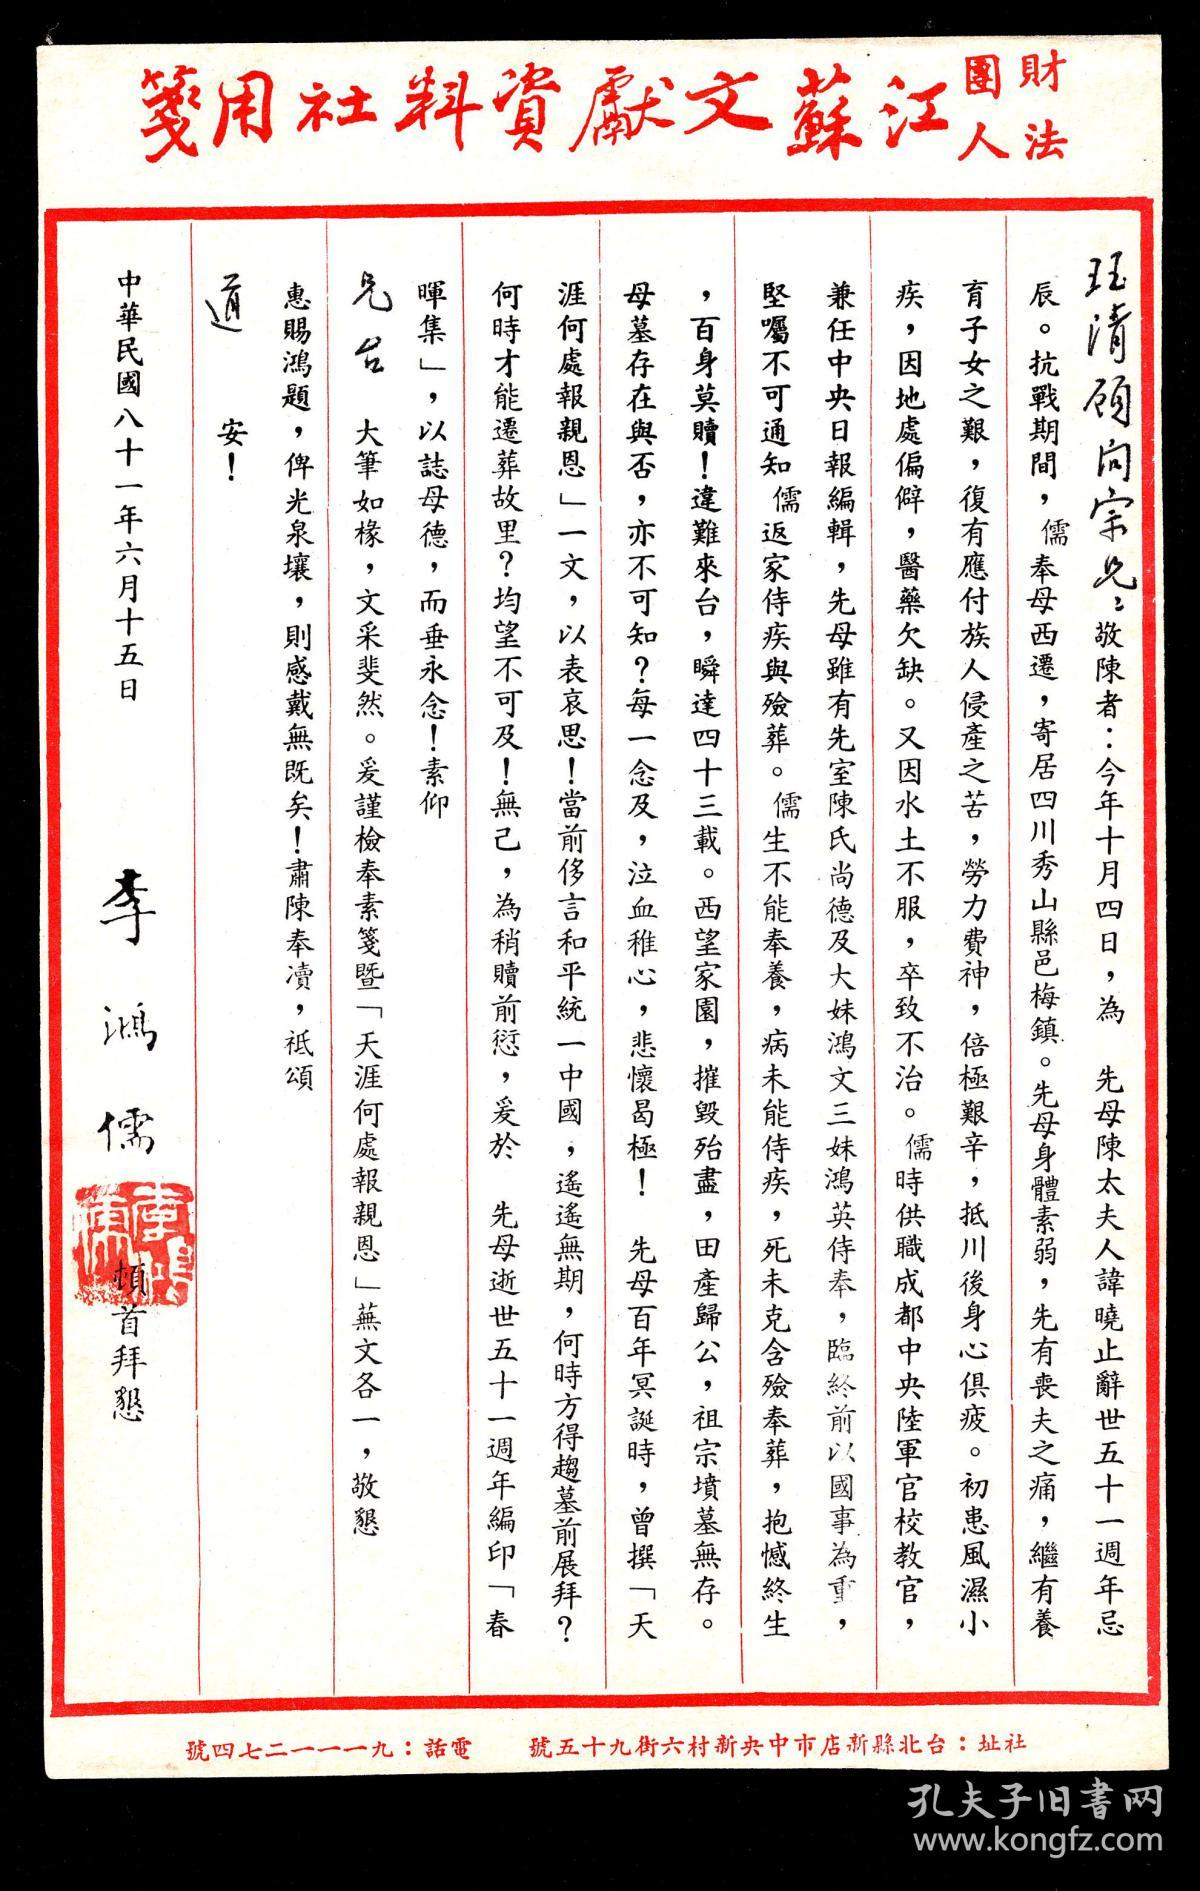 財團法人
江蘇文獻資料社用箋
珏清顧問宗兄：敬陳者：今年十月四日，為　先母陳太夫人諱曉止辭世五十一週年忌
辰。抗戰期間，儒奉母西遷，寄居四川秀山縣邑梅鎮。先母身體素弱，先有喪夫之痛，繼有養
育子女之艱，復有應付族人侵產之苦，勞力費神，倍極艱辛，抵川後身心俱疲。初患風濕小
疾，因地處偏僻，醫藥欠缺。又因水土不服，卒致不治。儒時供職成都中央陸軍官校教官，
兼任中央日報編輯，先母雖有先室陳氏尚德及大妹鴻文三妹鴻英侍奉，臨終前以國事為重，
堅囑不可通知儒返家侍疾與殮葬。儒生不能奉養，病未能侍疾，死未克含殮奉葬，抱憾終生
，百身莫贖！違難來台，瞬達四十三載。西望家園，摧毀殆盡，田產歸公，祖宗墳墓無存。
母墓存在與否，亦不可知？每一念及，泣血稚心，悲懷曷極！　先母百年冥誕時，曾撰「天
涯何處報親恩」一文，以表哀思！當前侈言和平統一中國，遙遙無期，何時方得趨墓前展拜？
何時才能遷葬故里？均望不可及！無已，為稍贖前愆，爰於　先母逝世五十一週年編印「春
暉集」，以誌母德，而垂永念！素仰
兄台　大筆如椽，文采斐然。爰謹檢奉素箋暨「天涯何處報親恩」蕪文各一，敬懇
惠賜鴻題，俾光泉壤，則感戴無既矣！肅陳奉瀆，祗頌
道　安！
中華民國八十一年六月十五日　李鴻儒　頓首拜懇
李鴻儒
社址：台北縣新店市中央新村六街九十五號　電話：九一一一二七四號
孔夫子旧书网
www.kongfz.com